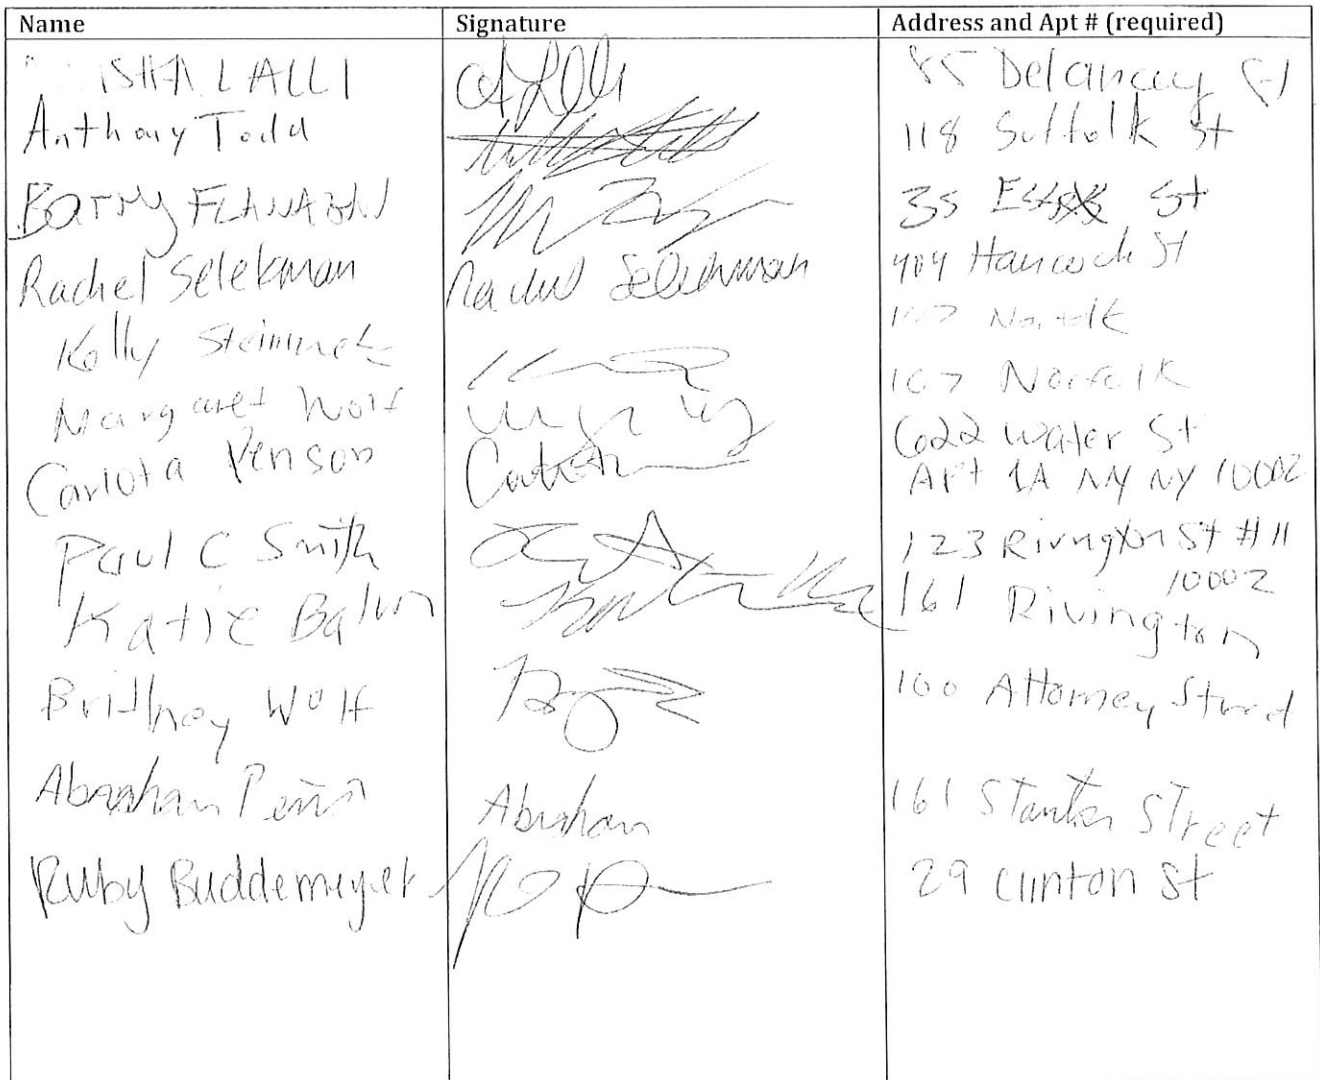 Name Signature Address and Apt # (required)
LALLI 85 Delancey St
Anthony Todd 118 Suffolk St
Barry 35 Essex St
Rachel Selekman Rachel Selekman 404 Hancock St
Kelly Norfolk
Margaret Wolf 167 Norfolk
Carlota Penson 622 Water St
Apt 1A NY NY 10002
Paul C Smith 123 Rivington St #11
10002
Katie 161 Rivington
Brittney Wolf 100 Attorney Street
Abraham Peña Abraham 161 Stanton Street
Ruby Buddemeyer 29 Clinton St